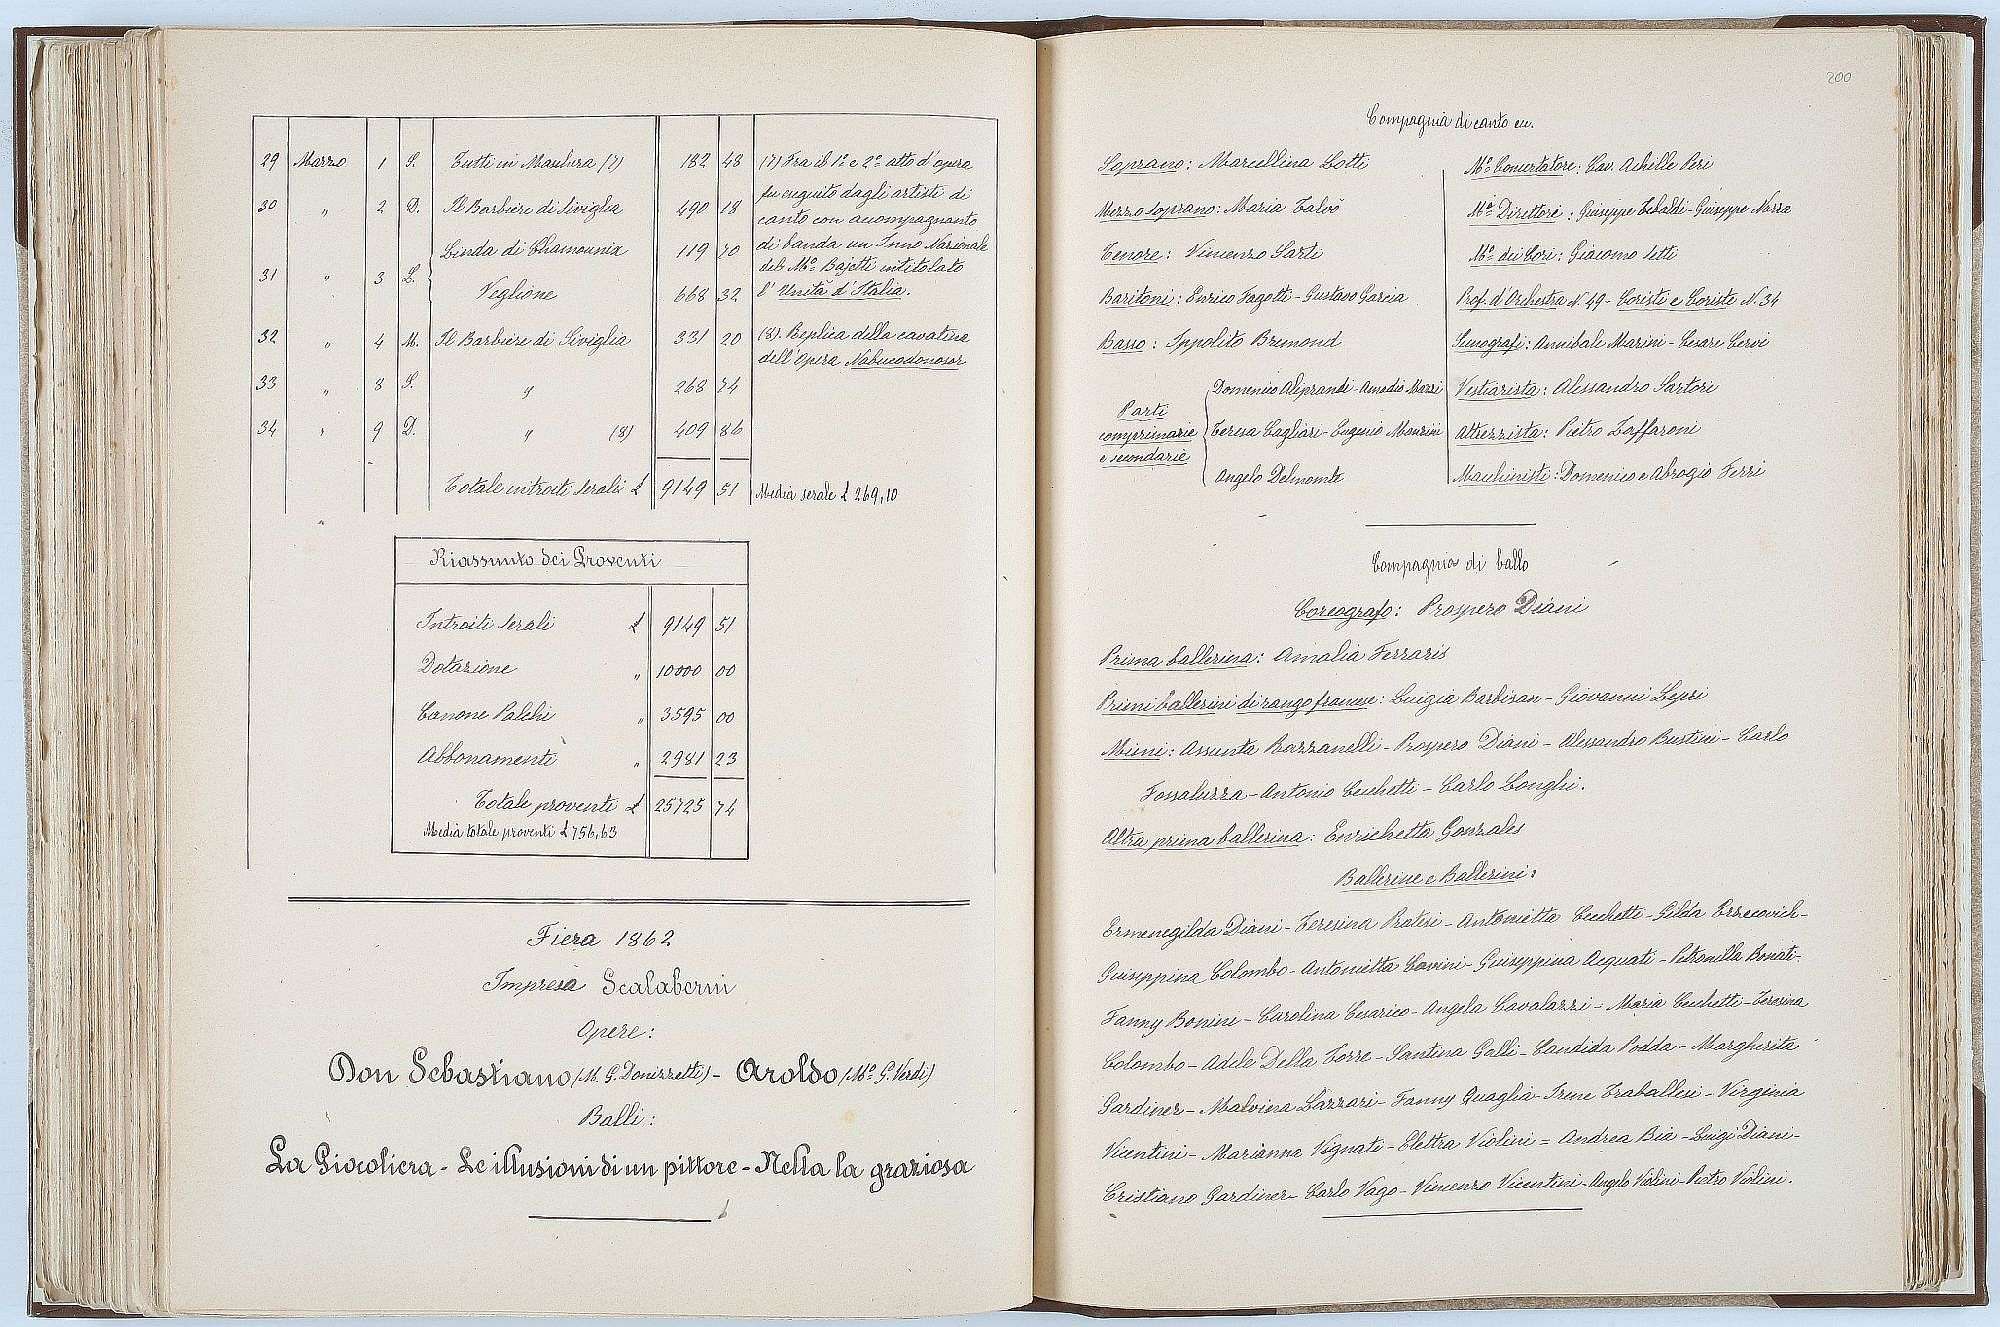 29 Marzo 1 S. Tutti in Maschera (7) 182 48 (7) Fra il 1º e 2º atto d'opera
fu eseguito dagli artisti di
30 „ 2 D. Il Barbiere di Siviglia 490 18 canto con accompagnanto
Linda di Chamounix 119 70 di banda un Inno Nazionale
31 „ 3 L. del Mº Bajetti intitolato
Veglione 668 32 l'Unità d'Italia.
32 „ 4 M. Il Barbiere di Siviglia 331 20 (8). Replica della cavatina
dell'Opera Nabucodonosor
33 „ 8 S. „ 268 74
34 „ 9 D. „ (8) 409 86
Totale introiti serali £ 9149 51 Media serale £ 269,10
Riassunto dei Proventi
Introiti serali £ 9149 51
Dotazione „ 10000 00
Canone Palchi „ 3595 00
Abbonamenti „ 2981 23
Totale proventi £ 25725 74
Media totale proventi £ 756,63
Fiera 1862
Impresa Scalaberni
Opere:
Don Sebastiano (M. G. Donizzetti) - Aroldo (Mº G. Verdi)
Balli:
La Giocoliera - Le illusioni di un pittore - Nella la graziosa
200
Compagnia di canto ecc.
Soprano: Marcellina Lotti
Mezzo soprano: Maria Talvò
Tenore: Vincenzo Sarti
Baritoni: Enrico Fagotti - Gustavo Garcia
Basso: Ippolito Bremond
Parti comprimarie e secondarie
Domenico Aliprandi - Amadio
Teresa Cagliari - Eugenio Manzini
Angelo Delmonte
Mº Concertatore: Cav. Achille Peri
Mi Direttori: Giuseppe Tebaldi - Giuseppe
Mº dei Cori: Giacomo Setti
Prof. d'Orchestra N. 49 - Coristi e Coriste N. 34
Scenografi: Annibale Marini - Cesare Cervi
Vestiarista: Alessandro Sartori
Attrezzista: Pietro Zaffaroni
Macchinisti: Domenico e Abrogio Ferri
Compagnia di ballo
Coreografo: Prospero Diani
Prima ballerina: Amalia Ferraris
Primi ballerini di rango francese: Luigia Barbisan - Giovanni Lepri
Mimi: Assunta Razzanelli - Prospero Diani - Alessandro Bustini - Carlo
Fossaluzza - Antonio Cecchetti - Carlo Longhi.
Altra prima ballerina: Enrichetta Gonzales
Ballerine e Ballerini:
Ermenegilda Diani - Teresina Pratesi - Antonietta Cecchetti - Gilda Errecovich -
Guiseppina Colombo - Antonietta Cavini - Guiseppina Acquati - Petronilla Bonati -
Fanny Bonini - Carolina Cesarico - Angela Cavalazzi - Maria Cecchetti - Teresina
Colombo - Adele Della Torre - Santina Galli - Candida Podda - Margherita
Gardiner - Malvina Lazzari - Fanny Quaglia - Irene Traballesi - Virginia
Vicentini - Marianna Vignati - Elettra Violini = Andrea Bia - Luigi Diani -
Cristiano Gardiner - Carlo Vago - Vincenzo Vicentini - Angelo Violini - Pietro Violini.